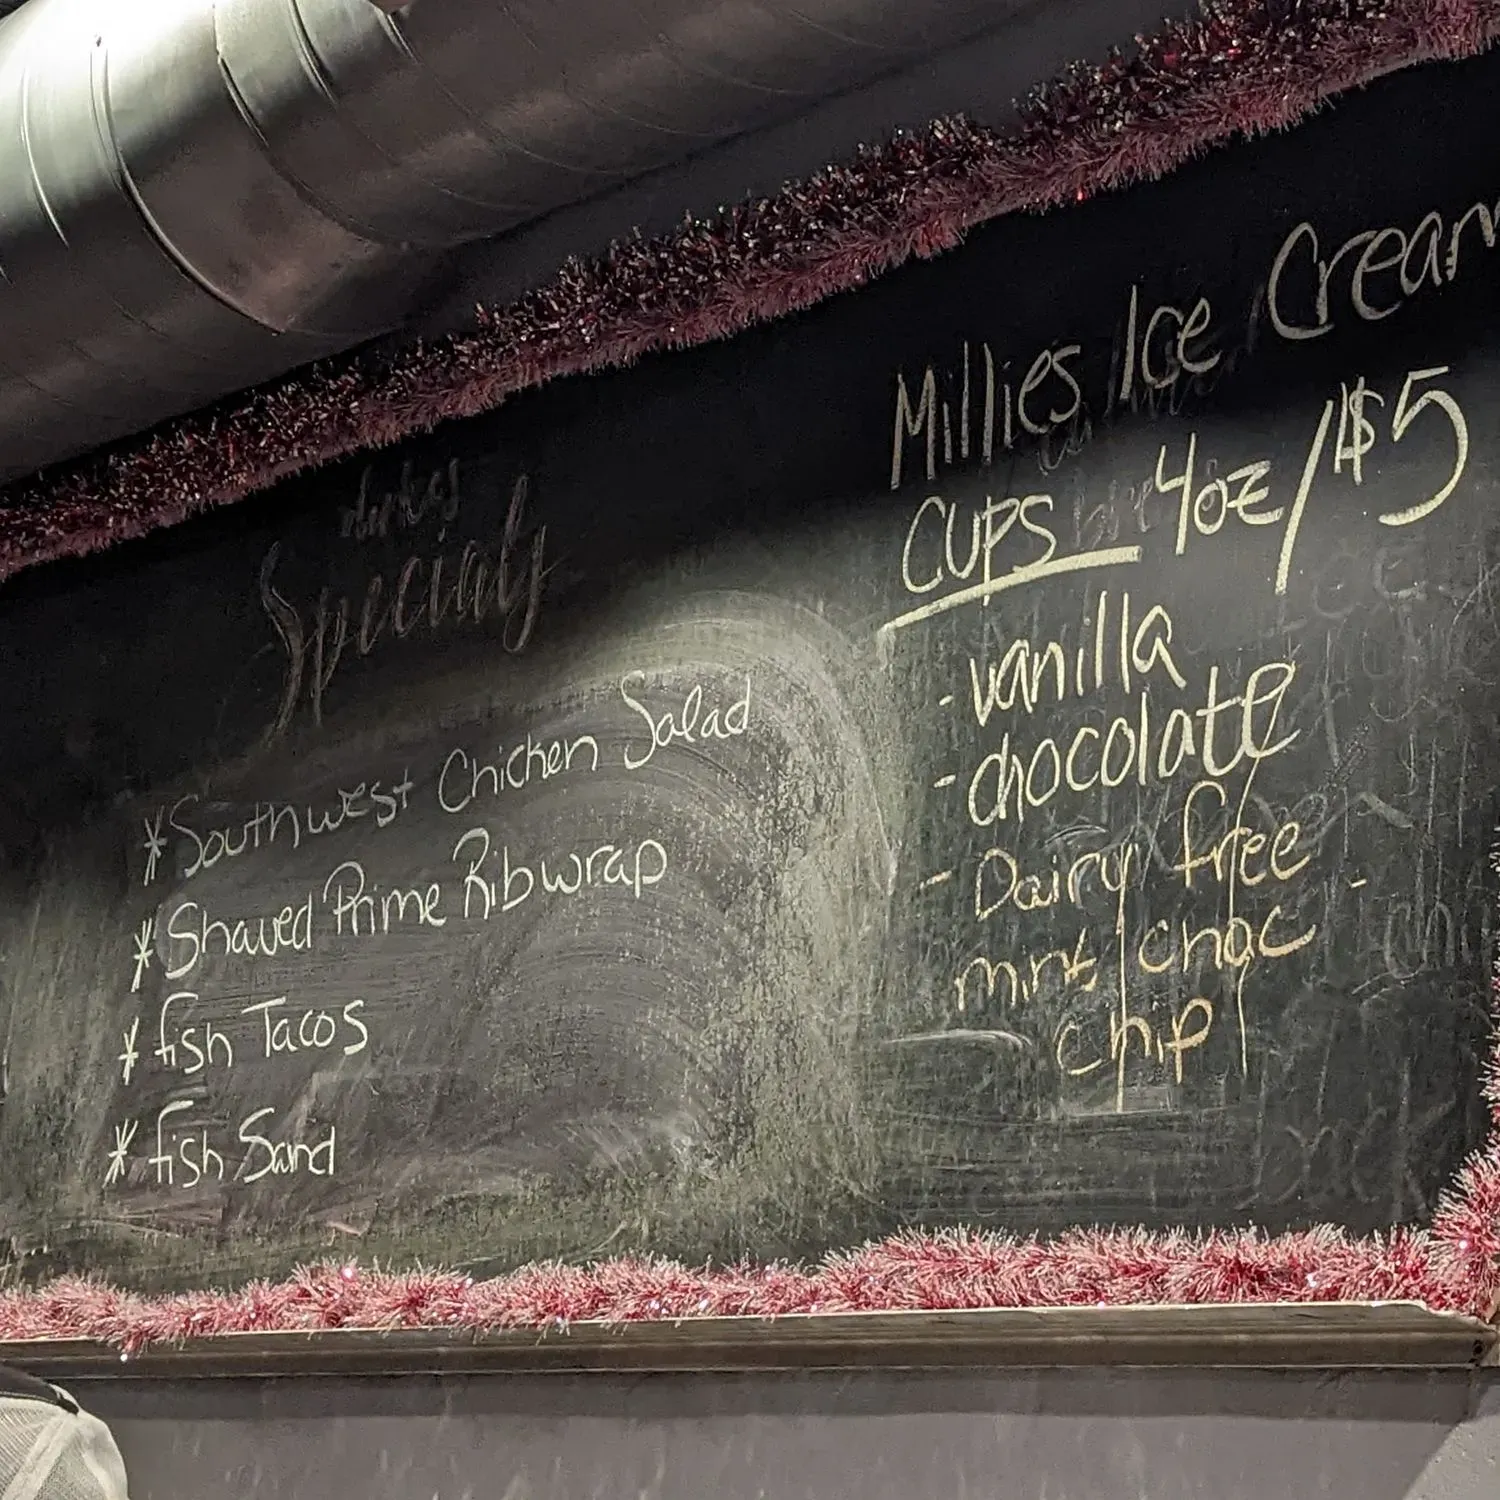 Specials
*Southwest Chicken Salad
*Shaved Prime Rib wrap
*fish Tacos
*fish Sand
Millies Ice Cream
CUPS 4oz/$5
-vanilla
-chocolate
-Dairy free
mint choc
chip